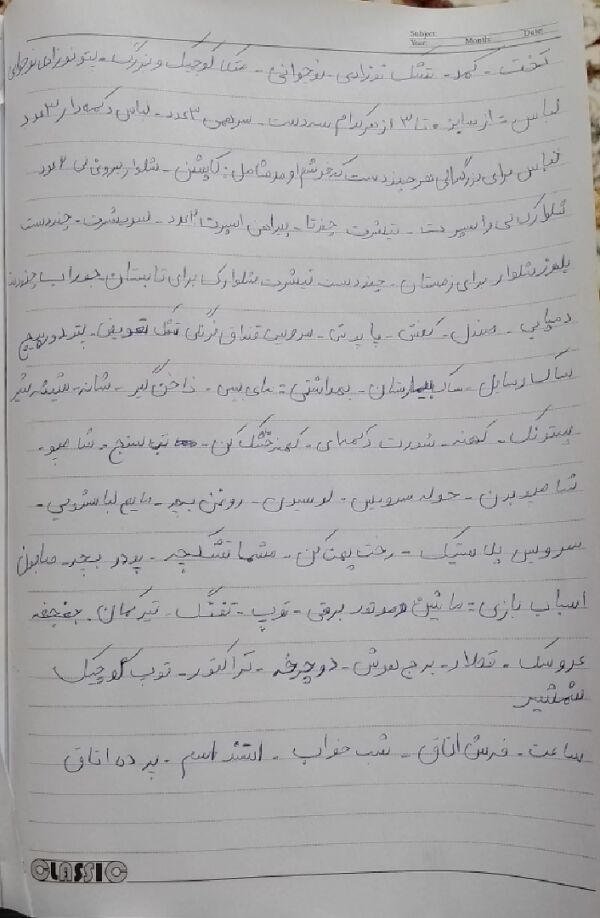 Subject:
Year: Month: Date:
تخت - کمد - تشک نوزادی - نوجوانی - متکا کوچیک و بزرگ - پتو نوزادی نوجوانی
لباس = از سایز ۰ تا ۳ از هرکدام سه دست - سرهمی ۳ عدد - لباس دکمه‌دار ۳ عدد
لباس برای بزرگسالی هر چند دست که خوشم اومد شامل: کاپشن - شلوار بیرونی لی ۲ عدد
شلوارک لی و اسپرت - تیشرت چندتا - پیراهن اسپرت ۲ عدد - سویشرت - چند دست
بلوز شلوار برای زمستان - چند دست تیشرت شلوارک برای تابستان - جوراب چند دست
دمپایی - صندل - کفش - پاپوش - سرویس قنداق فرنگی تشک تعویض - پتو دورپیچ
ساک وسایل - ساک بیمارستان - بهداشتی = مای بیبی - ناخن گیر - شانه - شیشه شیر
پستونک - کهنه - شورت دکمه‌ای - کهنه خشک کن - تب سنج - شامپو -
شامپو بدن - حوله سرویس - لوسیون - روغن بچه - مایع لباسشویی -
سرویس پلاستیک - رخت پهن کن - مشما تشک بچه - پودر بچه - صابون
اسباب بازی = ماشین و موتور برقی - توپ - تفنگ - تیرکمان - جغجغه
عروسک - قطار - برج هوش - دوچرخه - تراکتور - توپ کوچیک
شمشیر
ساعت - فرش اتاق - شب خواب - استند اسم - پرده اتاق
CLASSIC